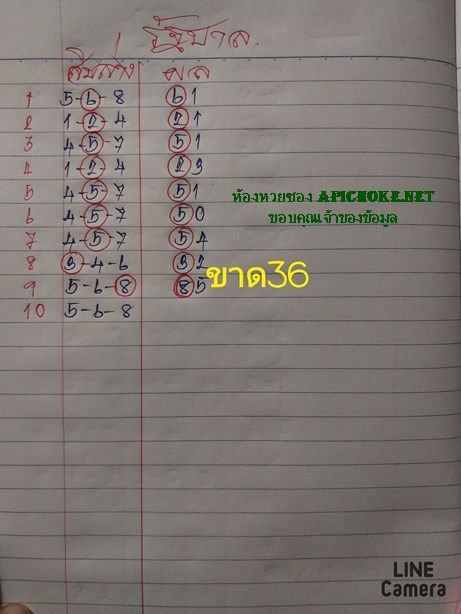 รัฐบาล
สิบล่าง ผล
1 5-6-8 61
2 1-2-4 21
3 4-5-7 51
4 1-2-4 23
5 4-5-7 51
6 4-5-7 50
7 4-5-7 54
8 3-4-6 32
9 5-6-8 85
10 5-6-8
ห้องหวยซอง APICHOKE.NET
ขอบคุณเจ้าของข้อมูล
ขาด36
LINE
Camera